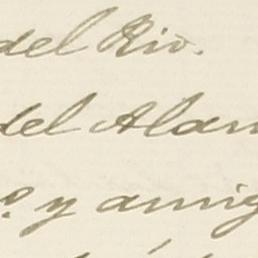 del Rio.
del Alam
o. y amig